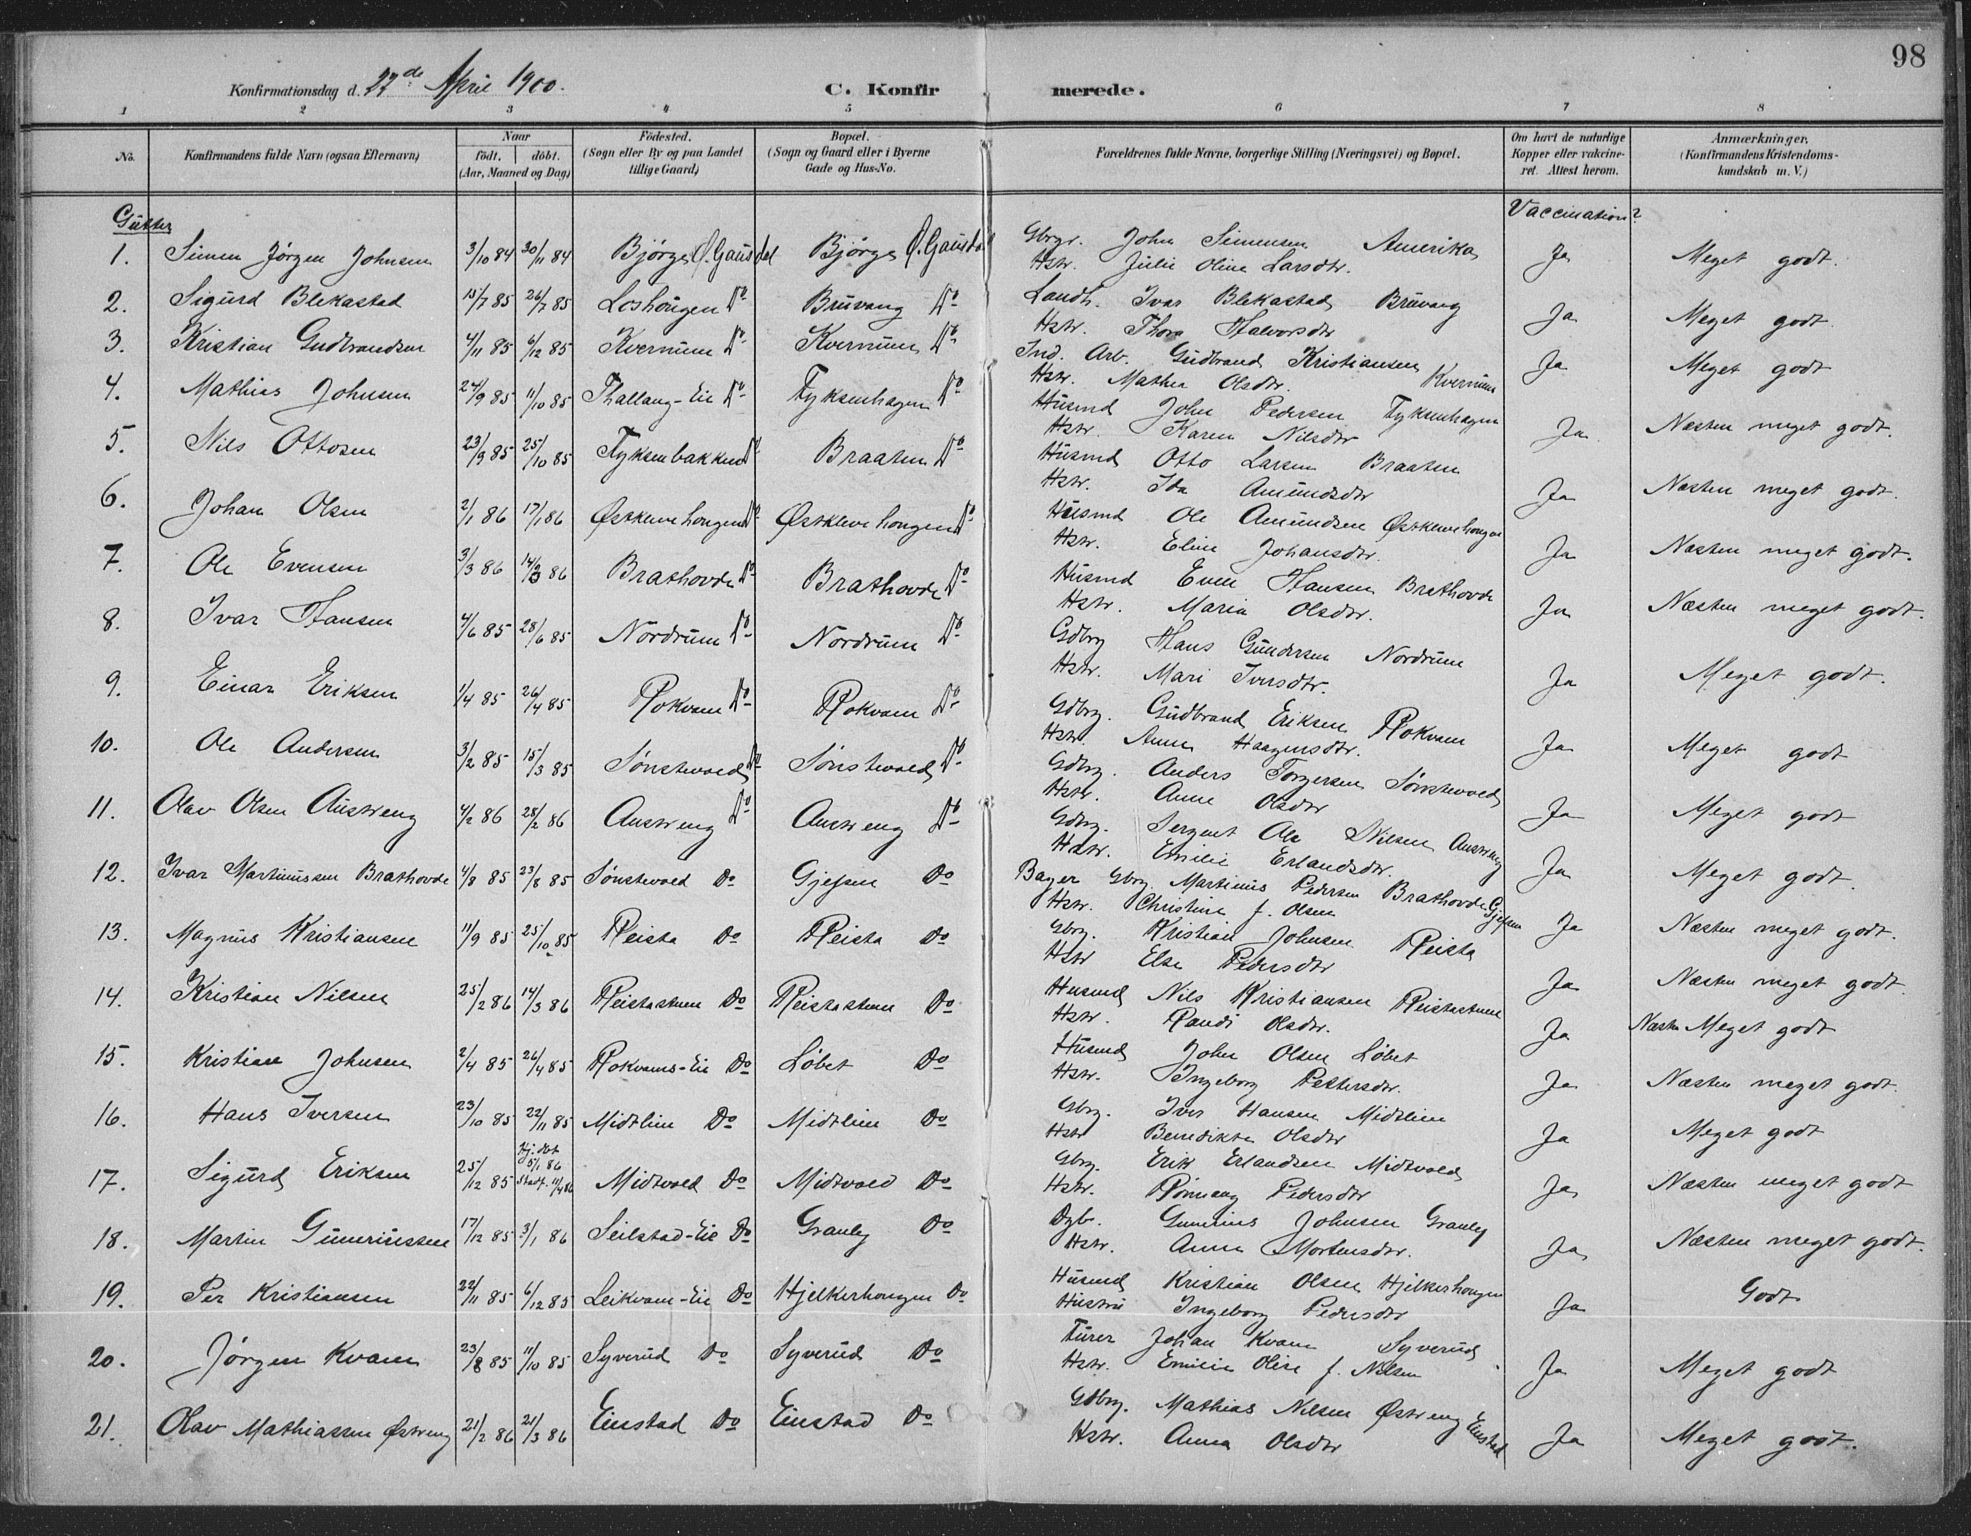 98
Konfirmationsdag d. 22de April 1900.
C. Konfirmerede.
1 2 3 4 5 6 7 8
No. Konfirmandens fulde Navn (ogsaa Efternavn) Naar født. døbt. (Aar, Maaned og Dag) Fødested. (Sogn eller By og paa Landet tillige Gaard) Bopæl. (Sogn og Gaard eller i Byerne Gade og Hus-No. Forældrenes fulde Navne, borgerlige Stilling (Næringsvei) og Bopæl. Om havt de naturlige Kopper eller vakcineret. Attest herom. Anmærkninger. (Konfirmandens Kristendomskundskab m. V.)
Gutter Vaccination?
1. Simen Jørgen Johnsen 3/10 84 30/11 84 Bjørge Ø. Gausdal Bjørge Ø. Gausdal Gbrgr. John Simensen Amerika Ja Meget godt.
Hstr. Julie Oline Larsdtr.
2. Sigurd Blekastad 15/7 85 26/7 85 Loshougen Do Bruvang Do Landh. Ivar Blekastad Bruvang Ja Meget godt.
Hstr. Thora Halvorsdtr
3. Kristian Gudbrandsen 4/11 85 6/12 85 Kvernum Do Kvernum Do Ind. Arb. Gudbrand Kristiansen Kvernum Ja Meget godt
Hstr. Mathea Olsdtr.
4. Mathias Johnsen 24/9 85 11/10 85 Thallaug-Eie Do Fyksenhagen Do Husmd John Pedersen Fyksenhagen Ja Næsten meget godt.
Hstr. Karen Nilsdtr
5. Nils Ottosen 23/9 85 25/10 85 Fyksenbakken Do Braaten Do Husmd Otto Larsen Braaten Ja Næsten meget godt.
Hstr. Ida Amundsdtr
6. Johan Olsen 2/1 86 17/1 86 Østklevehougen Do Østklevehougen Do Husmd Ole Amundsen Østklevehougen Ja Næsten meget godt.
Hstr. Eline Johansdtr.
7. Ole Evensen 3/3 86 14/3 86 Brathovde Do Brathovde Do Husmd Even Hansen Brathovde Ja Næsten meget godt.
Hstr. Maria Olsdtr.
8. Ivar Hansen 4/6 85 28/6 85 Nordrum Do Nordrum Do Gdbrg Hans Gundersen Nordrum Ja Meget godt.
Hstr. Mari Iversdtr.
9. Einar Eriksen 1/4 85 26/4 85 Rokvam Do Rokvam Do Gdbrg. Gudbrand Eriksen Rokvam Ja Meget godt
Hstr. Anne Haagensdtr.
10. Ole Andersen 3/2 85 15/3 85 Sønstevold Do Sønstevold Do Gdbrg. Anders Torgersen Sønstevold Ja Meget godt
Hstr. Anne Olsdtr
11. Olav Olsen Austreng 4/2 86 28/2 86 Austreng Do Austreng Do Gdbrg. Sergent Ole Nilsen Austreng Ja Meget godt.
Hstr. Emilie Erlandsdtr.
12. Ivar Martinussen Brathovde 4/8 85 23/8 85 Sønstevold Do Gjefsen Do Bager Gbrg. Martinus Pedersen Brathovde Gjefsen Ja Næsten meget godt.
Hstr. Christine f. Olsen
13. Magnus Kristiansen 11/9 85 25/10 85 Reista Do Reista Do Gbrg. Kristian Johnsen Reista Ja Næsten meget godt.
Hstr Else Pedersdtr
14. Kristian Nilsen 25/2 86 14/3 86 Reistastuen Do Reistastuen Do Husmd Nils Kristiansen Reistastuen Ja Næsten Meget godt
Hstr. Randi Olsdtr.
15. Kristian Johnsen 2/4 85 26/4 85 Rokvams-Eie Do Løbet Do Husmd John Olsen Løbet Ja Næsten meget godt.
Hstr. Ingeborg Pettersdtr.
16. Hans Iversen 23/10 85 22/11 85 Midtlien Do Midtlien Do Gbrg. Iver Hansen Midtlien Ja Meget godt
Hstr Benedikte Olsdtr
17. Sigurd Eriksen 25/12 85 Hj. døbt 5/1 86 Stadf. 11/4 86 Midtvold Do Midtvold Do Gbrg. Erik Erlandsen Midtvold Ja Næsten meget godt
Hstr. Rønnaug Pedersdtr
18. Martin Gunerius­sen 17/12 85 3/1 86 Seilstad-Eie Do Granly Do Dgb. Gunerius Johnsen Granly Ja Næsten meget godt.
Hstr. Anne Mortensdtr.
19. Per Kristiansen 22/11 85 6/12 85 Leikvam-Eie Do Hjelkerhougen Do Husmd Kristian Olsen Hjelkerhougen Ja Godt
Hustru Ingeborg Pedersdtr
20. Jørgen Kvam 23/8 85 11/10 85 Syverud Do Syverud Do Furer Johan Kvam Syverud Ja Meget godt
Hstr. Emilie Olise f. Nilsen
21. Olav Mathiassen Østreng 21/2 86 21/3 86 Einstad Do Einstad Do Gdbrg. Mathias Nilsen Østreng Einstad Ja Meget godt.
Hstr. Anna Olsdtr